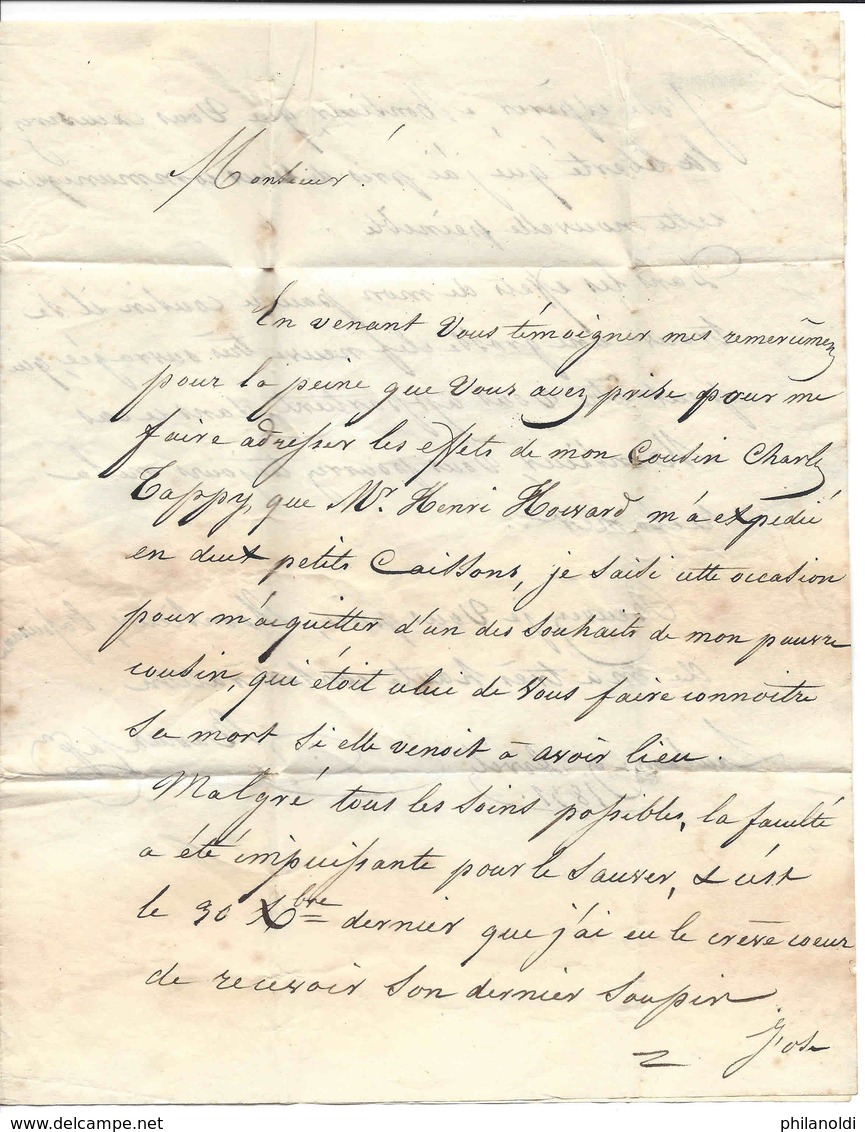 Monsieur !
En venant Vous témoigner mes remerciemens
pour la peine que Vous avez prise pour me
faire adresser les effets de mon Cousin Charles
Tappy, que Mr. Henri Howard m'a expédié
en deux petits Caissons, je saisi cette occasion
pour m'acquitter d'un des souhaits de mon pauvre
cousin, qui étoit celui de Vous faire connoître
sa mort si elle venoit à avoir lieu.
Malgré tous les soins possibles, la faculté
a été impuissante pour le sauver, & c'est
le 30 Xbre dernier que j'ai eu le crève coeur
de recevoir son dernier soupir
J'ose
philanoldi